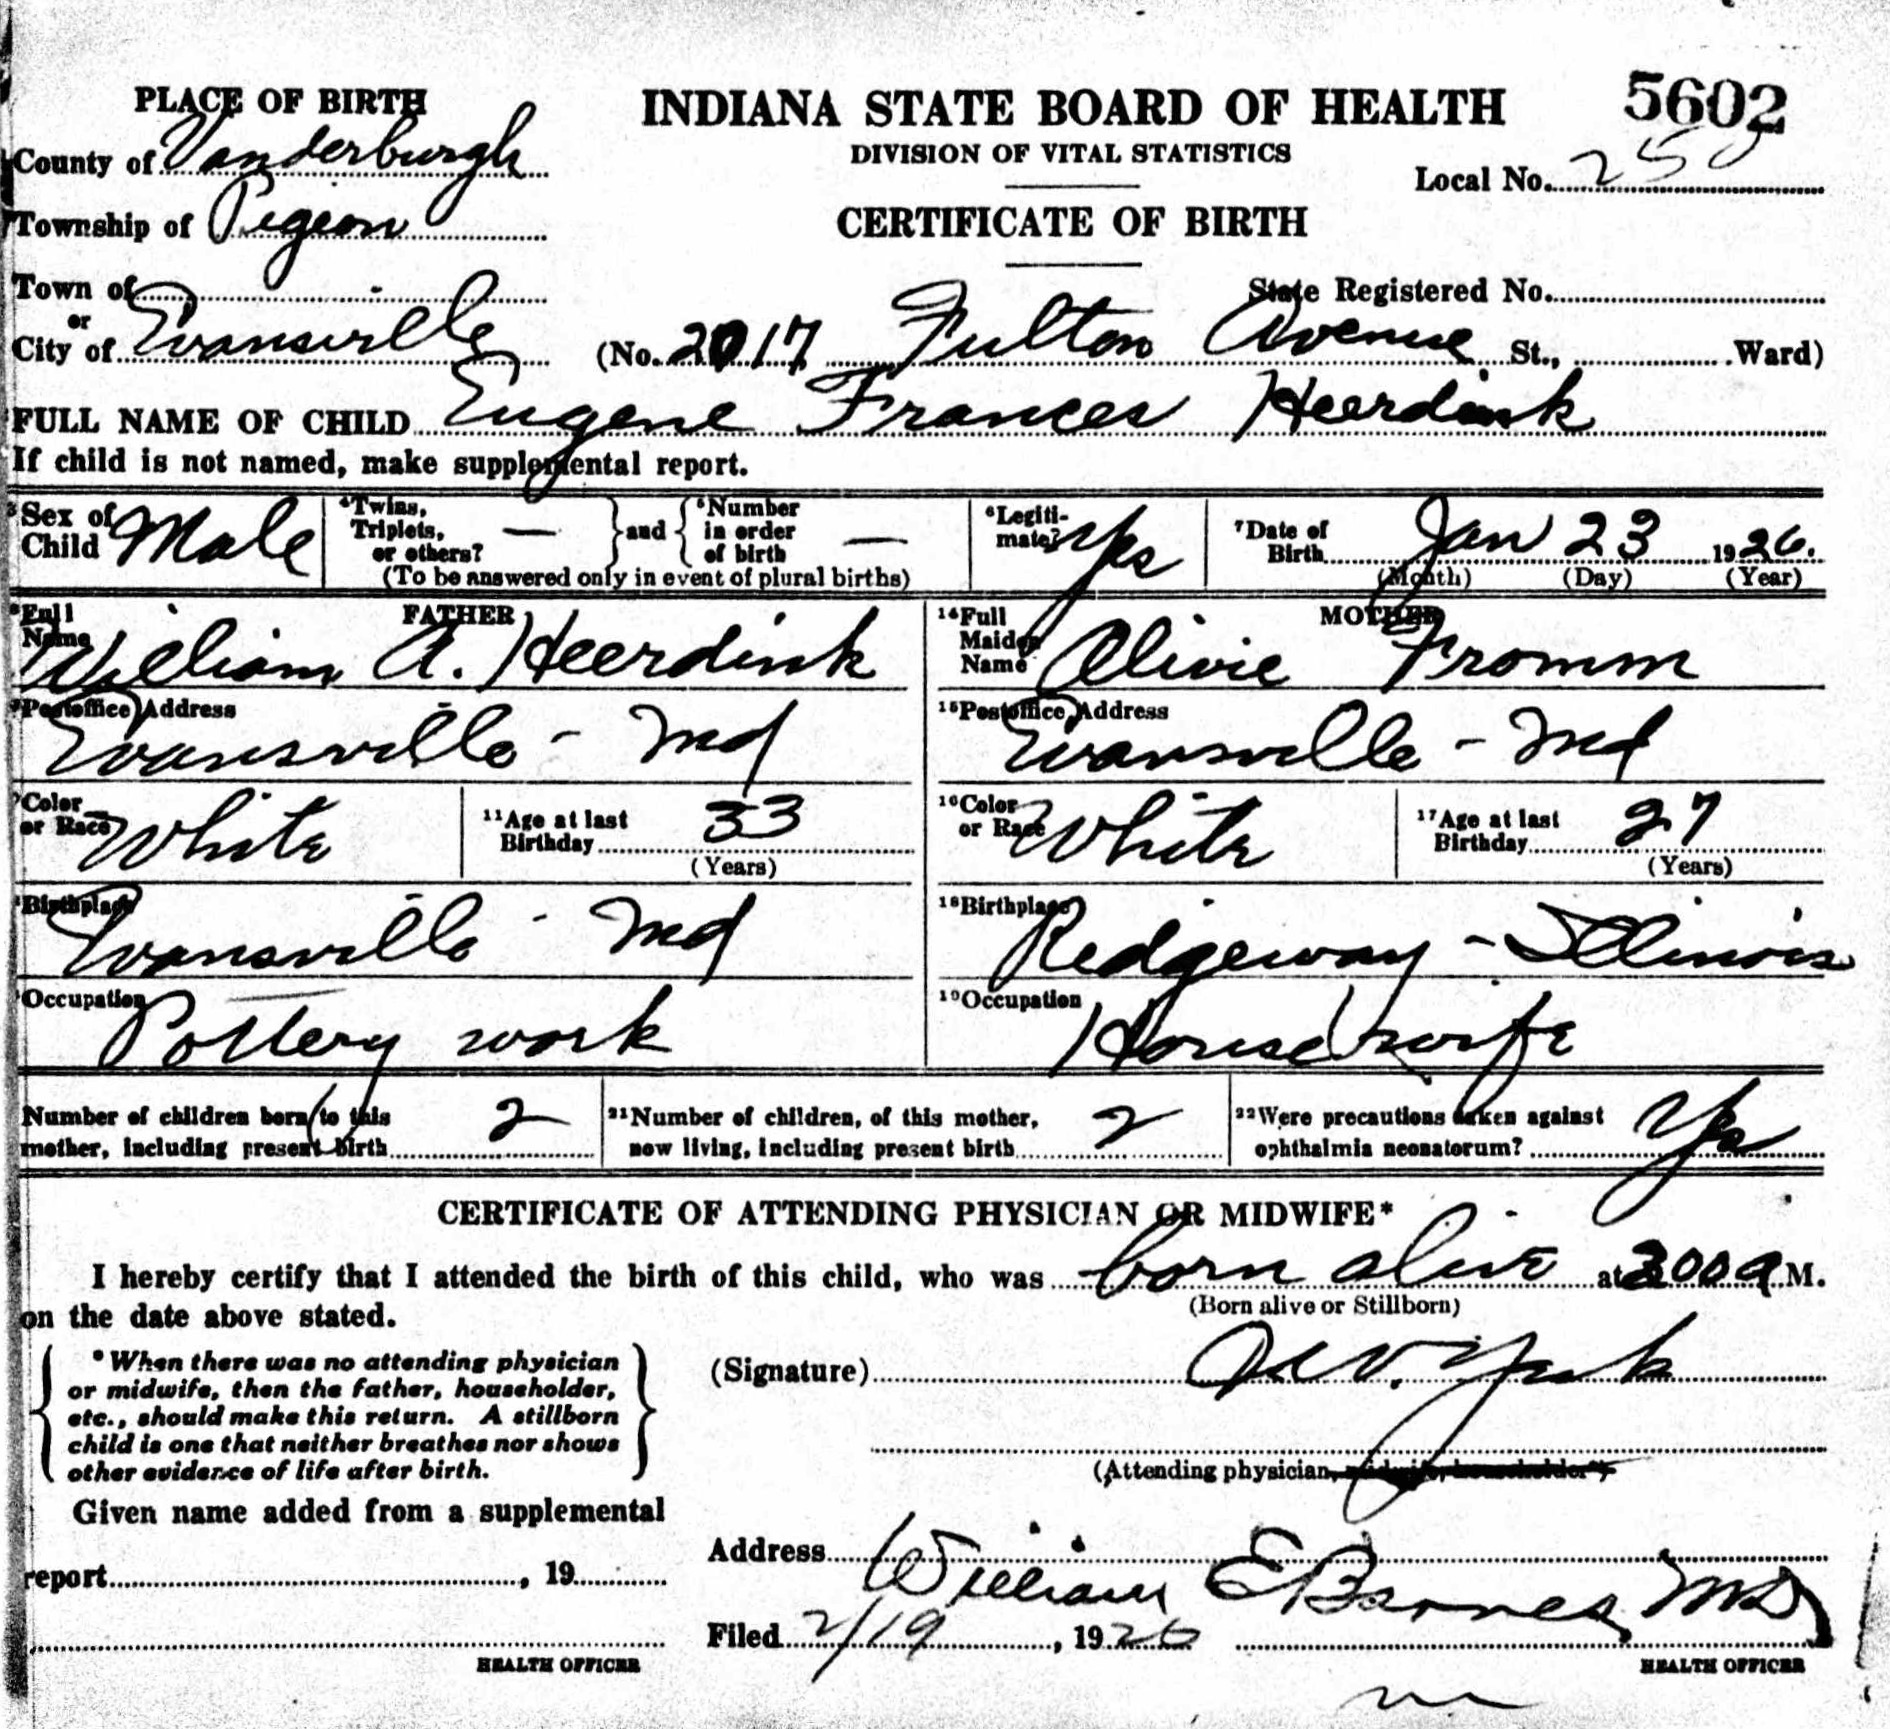 PLACE OF BIRTH
INDIANA STATE BOARD OF HEALTH
5602
County of Vanderburgh
DIVISION OF VITAL STATISTICS
Local No. 250
Township of Pigeon
CERTIFICATE OF BIRTH
Town of
or
State Registered No.
City of Evansville (No. 2017 Fulton Avenue St., Ward)
FULL NAME OF CHILD Eugene Frances Heerdink
If child is not named, make supplemental report.
3 Sex of Child Male
4 Twins, Triplets, or others? — and 5 Number in order of birth —
(To be answered only in event of plural births)
6 Legitimate? Yes
7 Date of Birth Jan 23 1926.
(Month) (Day) (Year)
FATHER
Full Name William A. Heerdink
MOTHER
14 Full Maiden Name Olivie Fromm
Postoffice Address Evansville - Ind
15 Postoffice Address Evansville - Ind
Color or Race White
11 Age at last Birthday 33
(Years)
16 Color or Race White
17 Age at last Birthday 27
(Years)
Birthplace Evansville - Ind
18 Birthplace Ridgeway - Illinois
Occupation Pottery work
19 Occupation Housewife
Number of children born to this mother, including present birth 2
21 Number of children, of this mother, now living, including present birth 2
22 Were precautions taken against ophthalmia neonatorum? Yes
CERTIFICATE OF ATTENDING PHYSICIAN OR MIDWIFE*
I hereby certify that I attended the birth of this child, who was born alive at 3 00 a M.
(Born alive or Stillborn)
on the date above stated.
*When there was no attending physician
or midwife, then the father, householder,
etc., should make this return. A stillborn
child is one that neither breathes nor shows
other evidence of life after birth.
(Signature) York
(Attending physician, midwife, householder*)
Given name added from a supplemental
report , 19
HEALTH OFFICER
Address
William E Barnes MD
Filed 2/19, 1926
HEALTH OFFICER